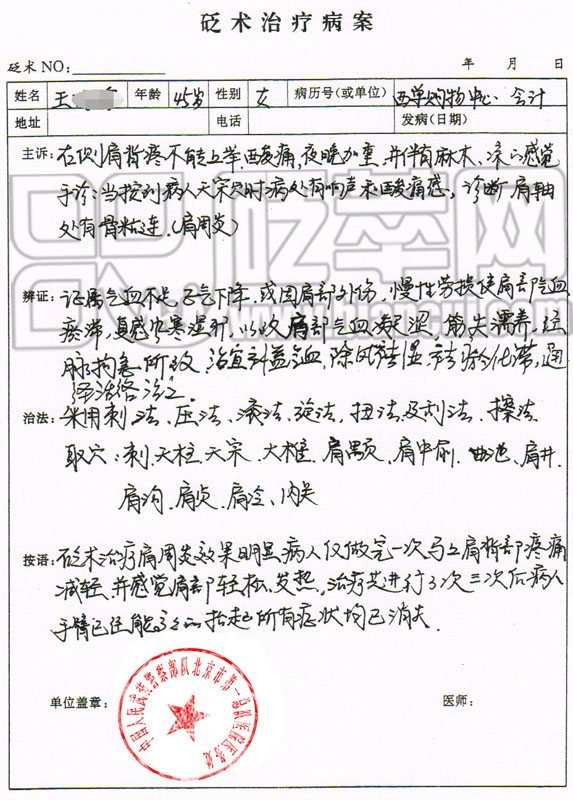 砭术治疗病案
砭术NO: 年 月 日
姓名 王 年龄 45岁 性别 女 病历号(或单位) 西单购物中心·会计
地址 电话 发病(日期)
主诉: 在侧肩背疼不能上举,酸痛,夜晚加重,并伴有麻木、凉的感觉
手诊:当按到病人天宗穴时病处有响声和酸痛感,诊断肩轴
处有骨粘连。(肩周炎)
辨证: 证属气血不足,正气下降,或因肩部外伤,慢性劳损使肩部气血
瘀滞,复感风寒湿邪,以致肩部气血凝涩,筋失濡养,经
脉拘急所致,治宜补益气血,除风祛湿,祛瘀化滞,通
经活络治之。
治法: 采用刺法、压法、滚法、旋法、扭法及刮法、擦法
取穴:刺、天柱、天宗、大椎、肩髃、肩中俞、曲池、肩井
肩沟、肩贞、肩泠、内关
按语: 砭术治疗肩周炎效果明显病人仅做完一次马上肩背部疼痛
减轻,并感觉肩部轻松、发热,治疗共进行3次三次后病人
手臂已经能 抬起所有症状均已消失.
单位盖章: 医师:
中国人民武装警察部队北京市第一总队医院医务处
砭萃网